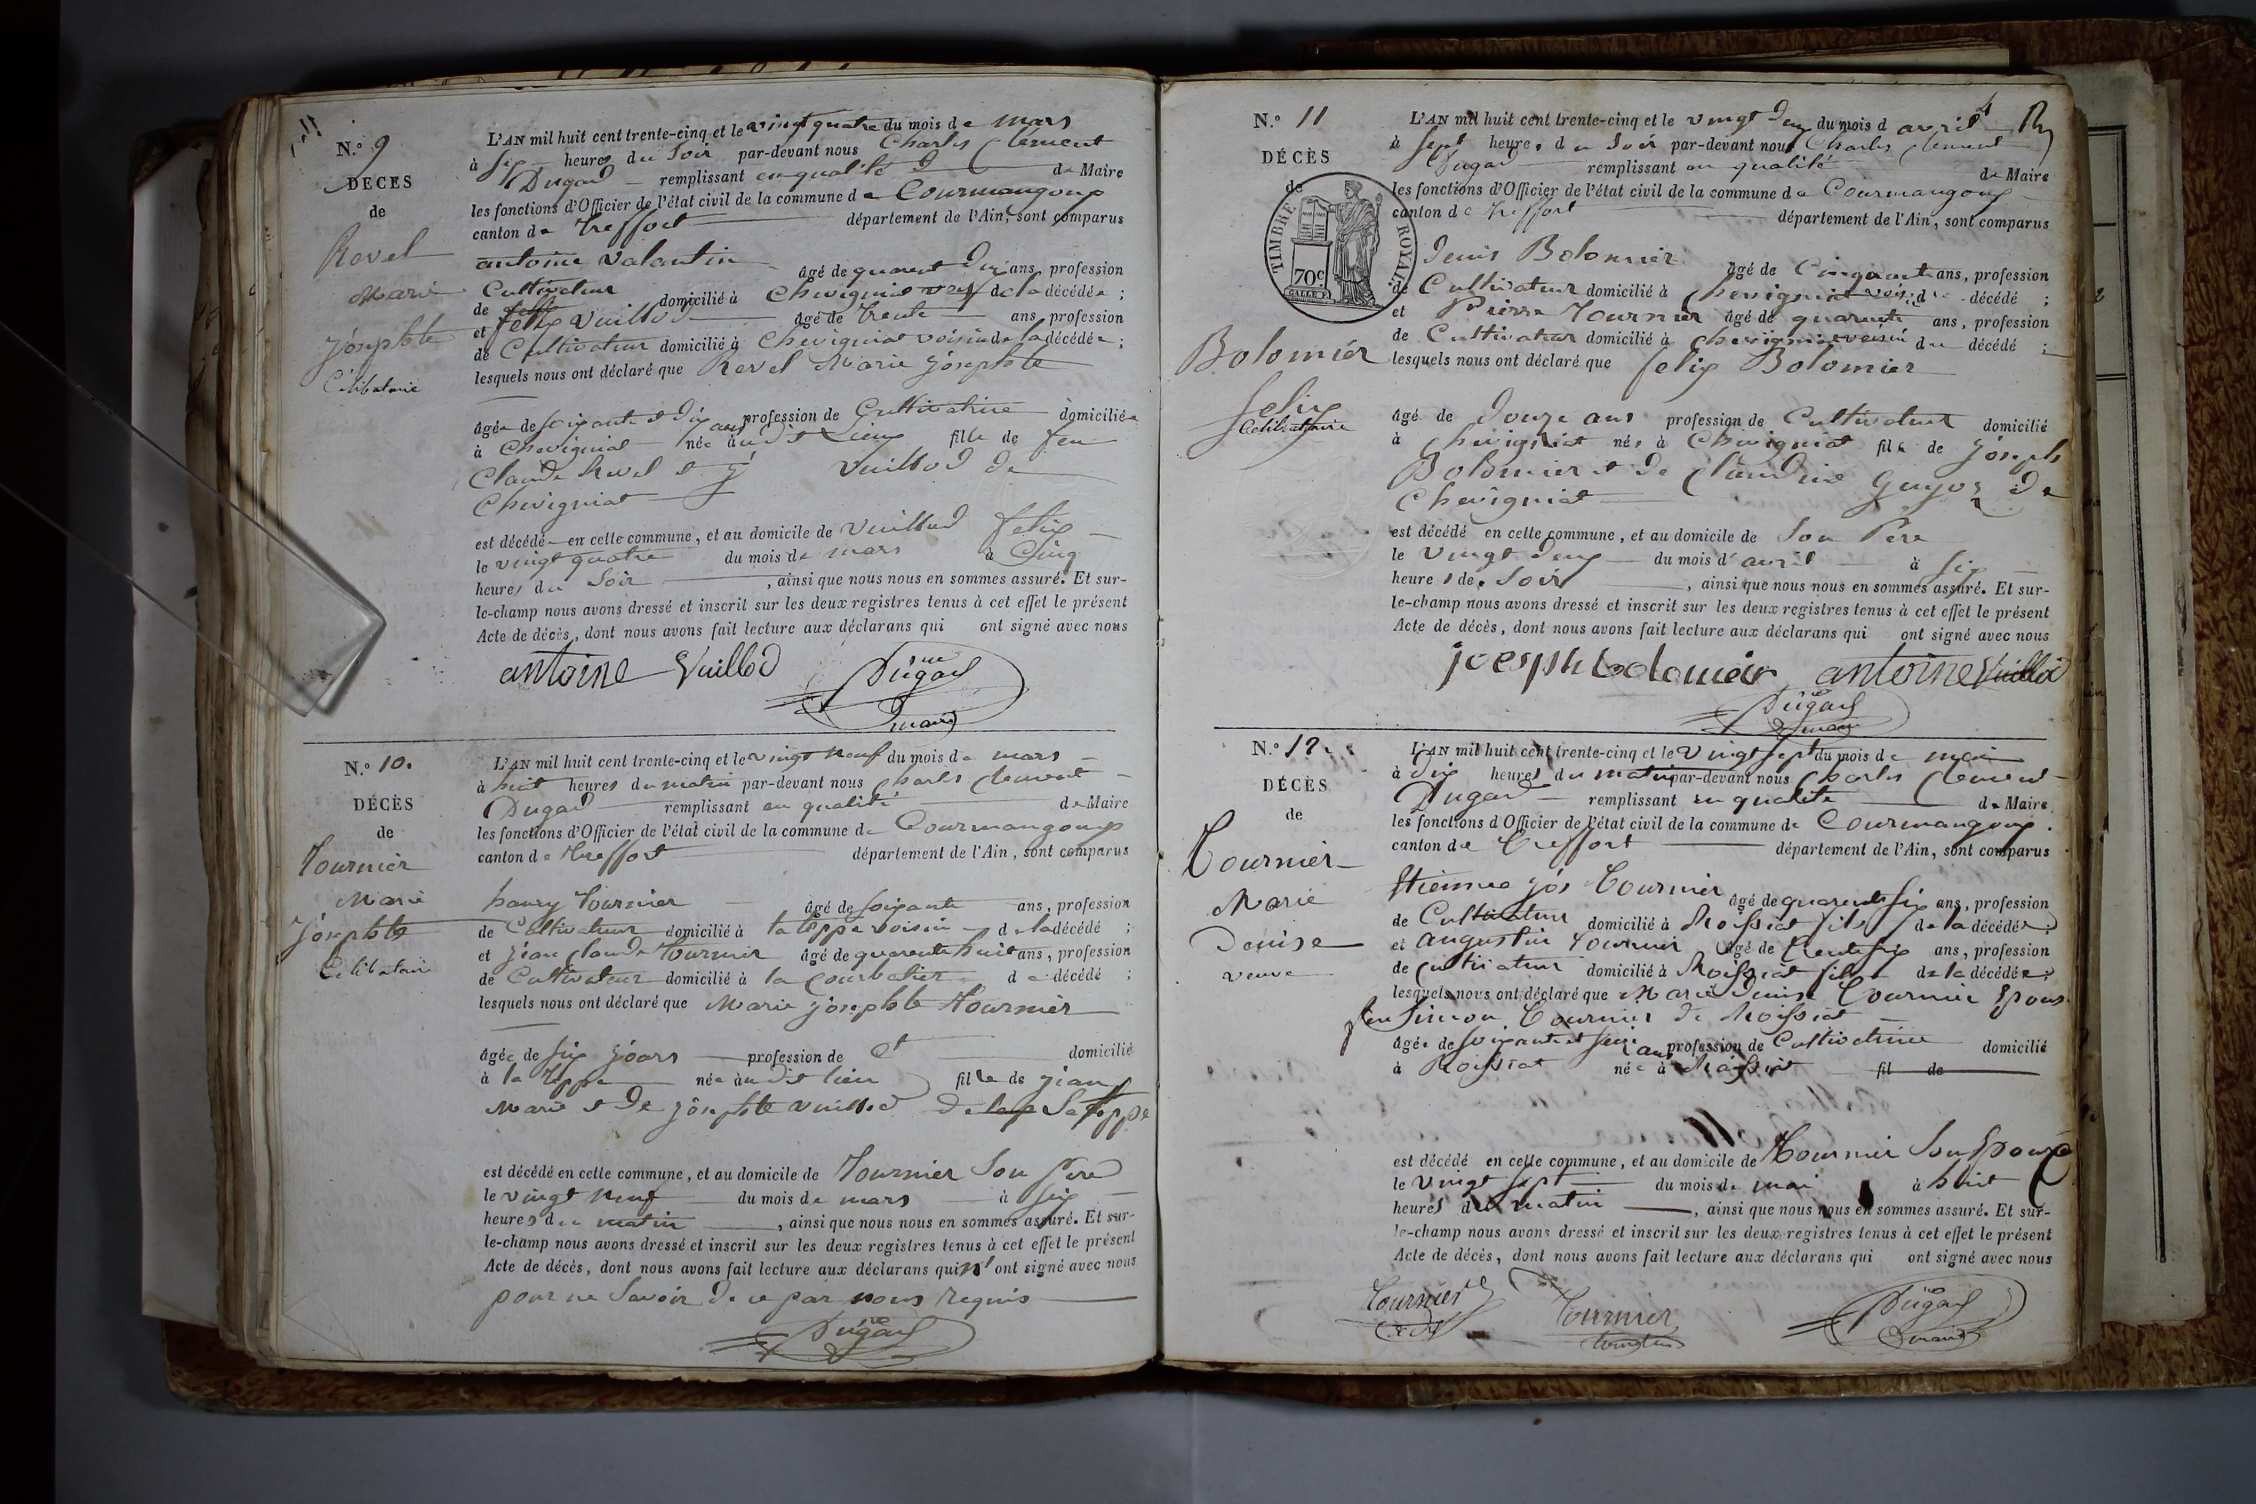 N.° 9
DÉCÈS
de
Revel
Marie
Joséphte
Célibataire
L'AN mil huit cent trente-cinq et le vingt quatre du mois de mars
à six heures du Soir par-devant nous Charles Clement
Dugad remplissant en qualité de Maire
les fonctions d'Officier de l'état civil de la commune de Courmangoux
canton de Treffort département de l'Ain, sont comparus
antoine valantin âgé de quarent deux ans, profession
de Cultivateur domicilié à Chevigniat de la décédée ;
et felix Vuillod âgé de trente ans, profession
de Cultivateur domicilié à Chevigniat voisin de la décédée ;
lesquels nous ont déclaré que Revel Marie Joséphte
âgée de soixante et dix ans profession de Cultivatrice domiciliée
à Chevigniat née audit Lieu fille de feu
Claude Revel et j Vuillod de
Chevigniat
est décédé en cette commune, et au domicile de Vuillod felix
le vingt quatre du mois de mars à Cinq
heures du Soir, ainsi que nous nous en sommes assuré. Et sur-
le-champ nous avons dressé et inscrit sur les deux registres tenus à cet effet le présent
Acte de décès, dont nous avons fait lecture aux déclarans qui ont signé avec nous
antoine Vuillod Dugad
maire
N.° 10.
DÉCÈS
de
Tournier
Marie
Joséphte
Célibataire
L'AN mil huit cent trente-cinq et le vingt neuf du mois de mars
à huit heures du matin par-devant nous Charles Clement
Dugad remplissant en qualité de Maire
les fonctions d'Officier de l'état civil de la commune de Courmangoux
canton de Treffort département de l'Ain, sont comparus
henry Tournier âgé de soixante ans, profession
de Cultivateur domicilié à la teppe voisin de la décédé ;
et jean claude Tournier âgé de quarente huit ans, profession
de Cultivateur domicilié à la Courbatier de décédé ;
lesquels nous ont déclaré que Marie joséphte Tournier
âgée de six jours profession de domicilié
à la teppe née audit lieu fille de jean
Marie et de joséphte vuillod de la teppe
est décédé en cette commune, et au domicile de Tournier Son Père
le vingt neuf du mois de mars à six
heures du matin, ainsi que nous nous en sommes assuré. Et sur-
le-champ nous avons dressé et inscrit sur les deux registres tenus à cet effet le présent
Acte de décès, dont nous avons fait lecture aux déclarans qui n'ont signé avec nous
pour ne Savoir de ce par nous requis
Dugad
N.° 11
DÉCÈS
de
TIMBRE ROYAL
70c
Bolomier
felix
Célibataire
L'AN mil huit cent trente-cinq et le vingt deux du mois d avril
à Sept heures du Soir par-devant nous Charles Clement
Dugad remplissant en qualité de Maire
les fonctions d'Officier de l'état civil de la commune de Courmangoux
canton de Treffort département de l'Ain, sont comparus
Denis Bolomier âgé de Cinquante ans, profession
de Cultivateur domicilié à Chevigniat voisin du décédé ;
et Pierre Tournier âgé de quarente ans, profession
de Cultivateur domicilié à Chevigniat voisin du décédé ;
lesquels nous ont déclaré que felix Bolomier
âgé de Douze ans profession de Cultivateur domicilié
à Chevigniat né à Chevigniat fils de Joseph
Bolomier et de Claudine Guyoz de
Chevigniat
est décédé en cette commune, et au domicile de Son Père
le vingt deux du mois d'avril à six
heures de Soir, ainsi que nous nous en sommes assuré. Et sur-
le-champ nous avons dressé et inscrit sur les deux registres tenus à cet effet le présent
Acte de décès, dont nous avons fait lecture aux déclarans qui ont signé avec nous
joesph bolomier antoine Vuillod
Dugad
maire
N.° 12.
DÉCÈS
de
Tournier
Marie
Denise
veuve
L'AN mil huit cent trente-cinq et le vingt sept du mois de mai
à dix heures du matin par-devant nous Charles Clement
Dugad remplissant en qualité de Maire
les fonctions d'Officier de l'état civil de la commune de Courmangoux.
canton de Treffort département de l'Ain, sont comparus
Etienne jos Tournier âgé de quarente six ans, profession
de Cultivateur domicilié à Roissiat fils de la décédée ;
et augustin Tournier âgé de trente six ans, profession
de Cultivateur domicilié à Roissiat fils de la décédée ;
lesquels nous ont déclaré que Marie Denise Tournier Epouse
feu Simon Tournier de Roissiat
âgée de soixante et seize ans profession de Cultivatrice domicilié
à Roissiat née à Roissiat fil de
est décédé en cette commune, et au domicile de Tournier Son Epoux
le vingt sept du mois de mai à huit
heures du matin, ainsi que nous nous en sommes assuré. Et sur-
le-champ nous avons dressé et inscrit sur les deux registres tenus à cet effet le présent
Acte de décès, dont nous avons fait lecture aux déclarans qui ont signé avec nous
Tournier Tournier Dugad
maire